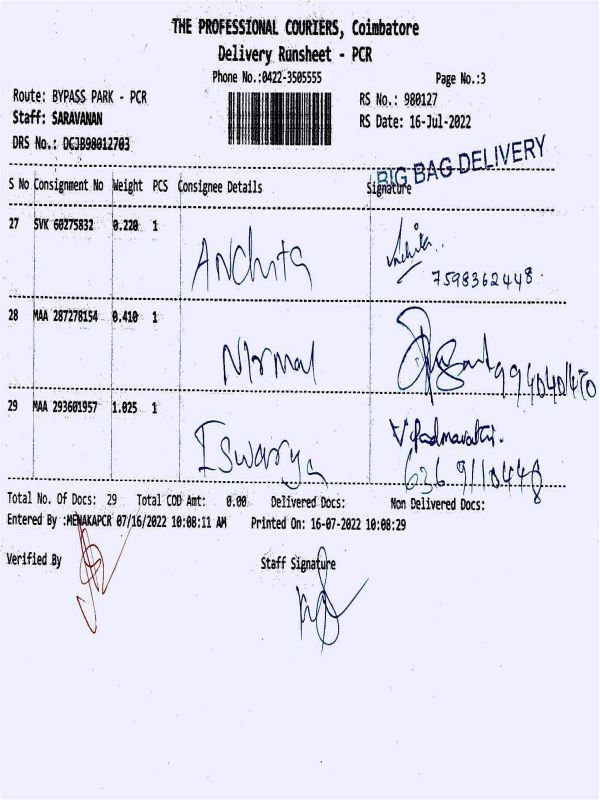 THE PROFESSIONAL COURIERS, Coimbatore
Delivery Runsheet - PCR
Phone No.:0422-3505555 Page No.:3
Route: BYPASS PARK - PCR RS No.: 980127
Staff: SARAVANAN RS Date: 16-Jul-2022
DRS No.: DCJB98012703
BIG BAG DELIVERY
S No Consignment No Weight PCS Consignee Details Signature
27 SVK 60275832 0.220 1 Anchita Anchita
7598362448
28 MAA 287278154 0.410 1 Nirmal
29 MAA 293601957 1.025 1 Iswarya V. Padmavathi.
6369110448
Total No. Of Docs: 29 Total COD Amt: 0.00 Delivered Docs: Non Delivered Docs:
Entered By :MENAKAPCR 07/16/2022 10:08:11 AM Printed On: 16-07-2022 10:08:29
Verified By Staff Signature